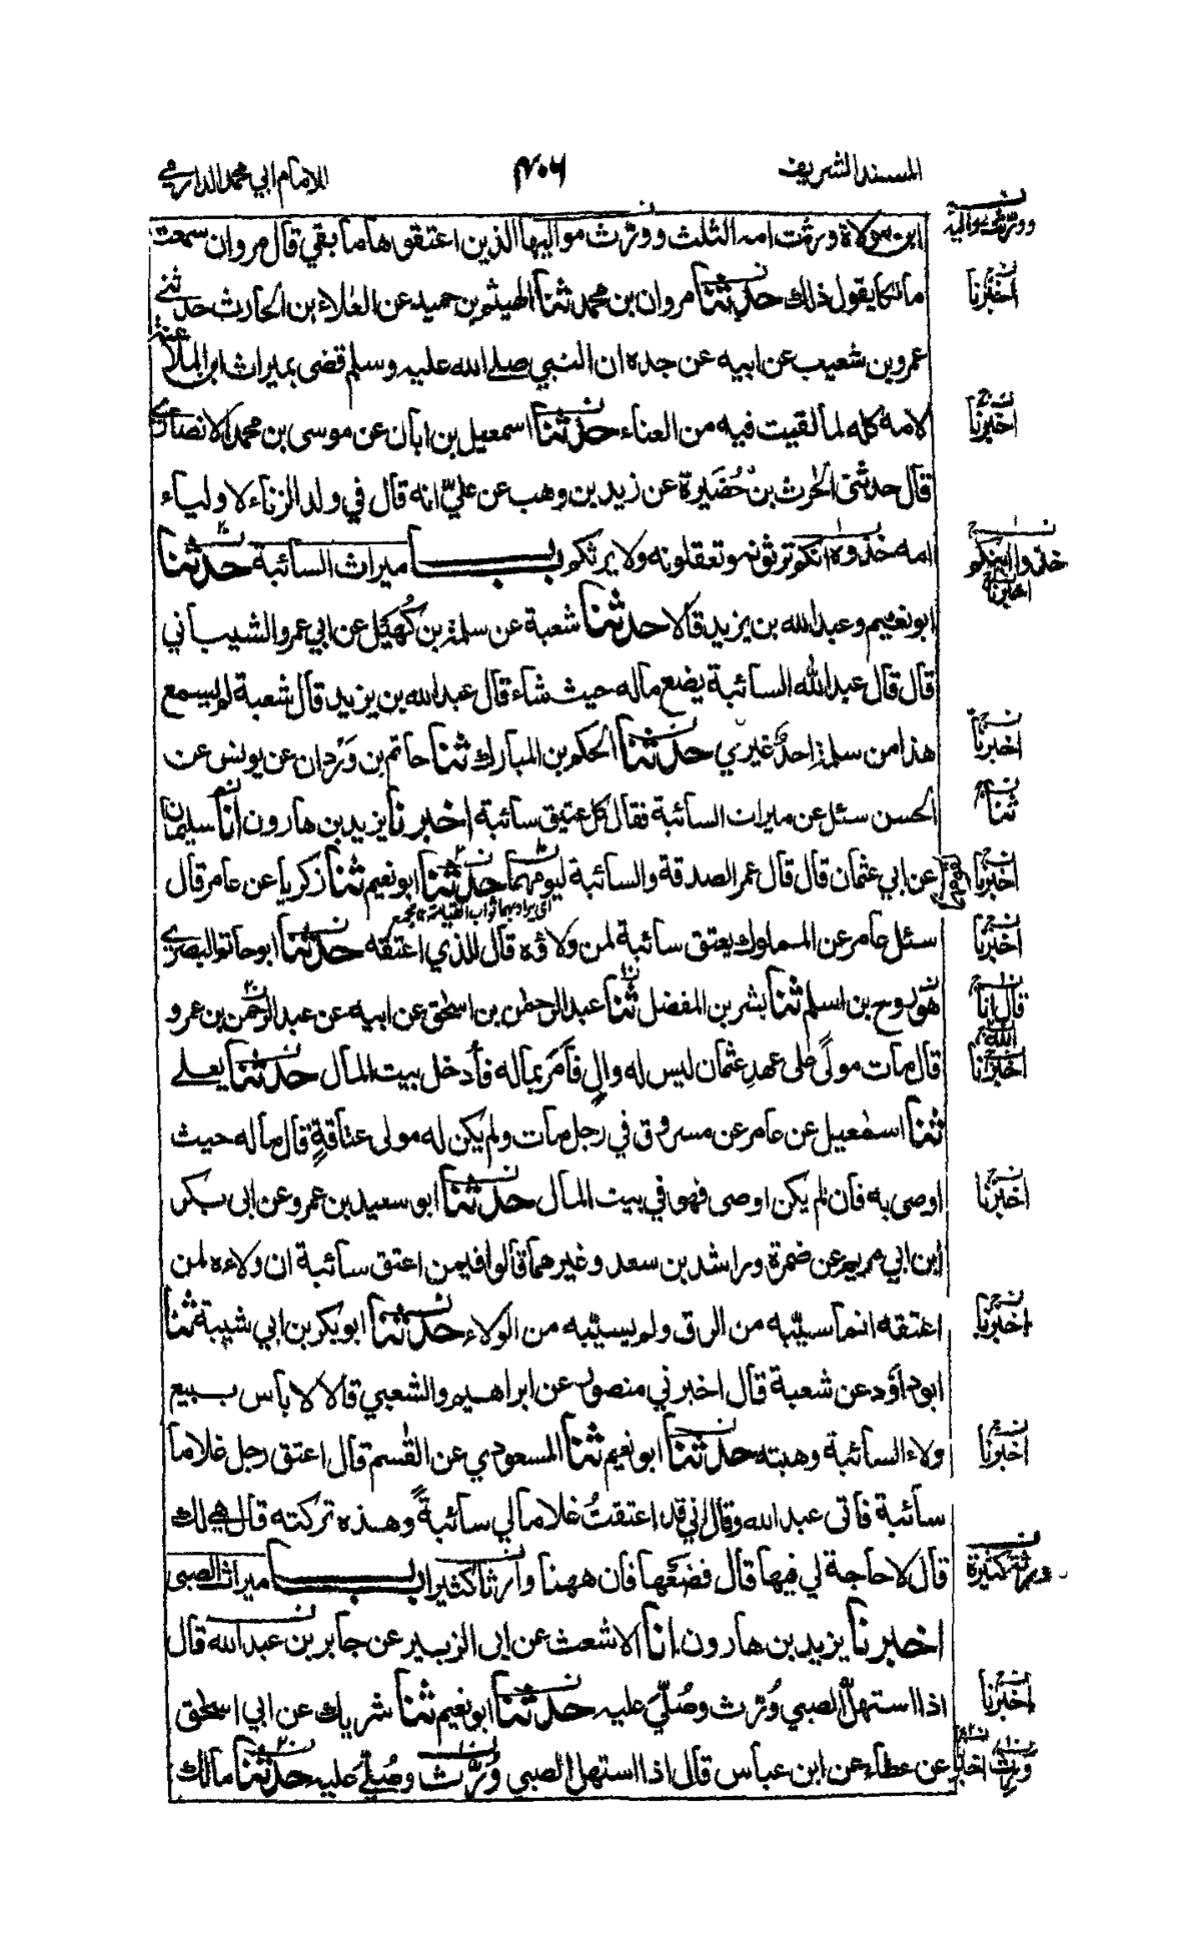 المسند الشريف
٤٠٦
للامام ابي محمد الدارمي
ابن مولاة ورثت امه الثلث وورث مواليها الذين اعتقوها ما بقي قال مروان سمعت
مالكا يقول ذلك حدثنا مروان بن محمد ثنا الهيثم بن حميد عن العلاء بن الحارث حدثني
عمرو بن شعيب عن ابيه عن جده ان النبي صلى الله عليه وسلم قضى بميراث ابن الملاعنة
لامه كله لما لقيت فيه من العناء حدثنا اسمعيل بن ابان عن موسى بن محمد الانصاري
قال حدثني الحرث بن حُضَيرة عن زيد بن وهب عن عليّ انه قال في ولد الزناء لاولياء
امه خذوه انكم ترثونه وتعقلونه ولا يرثكم بـــاب ميراث السائبة حدثنا
ابو نعيم وعبد الله بن يزيد قالا حدثنا شعبة عن سلمة بن كُهَيْل عن ابي عمرو الشيباني
قال قال عبد الله السائبة يضع ماله حيث شاء قال عبد الله بن يزيد قال شعبة لم يسمع
هذا من سلمة احدٌ غيري حدثنا الحكم بن المبارك ثنا حاتم بن وَرْدان عن يونس عن
الحسن سئل عن ميراث السائبة فقال كل عتيق سائبة اخبرنا يزيد بن هارون انا سليمان
عن ابي عثمان قال قال عمر الصدقة والسائبة ليومهما حدثنا ابو نعيم ثنا زكريا عن عامر قال
اي يراد بهما ثواب القيامة ١٢ مجمع
سئل عامر عن المملوك يعتق سائبة لمن ولاؤه قال للذي اعتقه حدثنا ابو حاتم البصري
هو روح بن اسلم ثنا بشر بن المفضل ثنا عبد الرحمن بن اسحق عن ابيه عن عبد الرحمن بن عمرو
قال مات مولىً على عهدِ عثمان ليس له والٍ فأَمَرَ بماله فأُدخل بيت المال حدثنا يعلى
ثنا اسمعيل عن عامر عن مسروق في رجل مات ولم يكن له مولى عتاقةٍ قال ماله حيث
اوصى به فان لم يكن اوصى فهو في بيت المال حدثنا ابو سعيد بن عمرو عن ابى بكر
ابن ابي مريم عن ضمرة وراشد بن سعد وغيرهما قالوا فيمن اعتق سائبة ان ولاءه لمن
اعتقه انما سيّبه من الرق ولم يسيّبه من الولاء حدثنا ابو بكر بن ابي شيبة ثنا
ابو داؤد عن شعبة قال اخبرني منصور عن ابراهيم والشعبي قالا لا بأس ببيع
ولاء السائبة وهبته حدثنا ابو نعيم ثنا المسعودي عن القسم قال اعتق رجل غلاما
سائبة فاتى عبد الله وقال اني قد اعتقتُ غلاما لي سائبةً وهذه تركته قال هي لك
قال لا حاجة لي فيها قال فضَعْها فان ههنا وارثا كثيرا بـــاب ميراث الصبى
اخبرنا يزيد بن هارون انا الاشعث عن ابى الزبير عن جابر بن عبد الله قال
اذا استهلّ الصبي وُرِّث وصُلّيَ عليه حدثنا ابو نعيم ثنا شريك عن ابي اسحق
عن عطاء عن ابن عباس قال اذا استهل الصبي وُرِّث وصُلّيَ عليه حدثنا مالك
وورثه مواليه
اخبرنا
اخبرنا
خذوا انكم
اخبرنا
اخبرنا
ثنا
اخبرنا
اخبرنا
قال انا
الله
اخبرنا
اخبرنا
اخبرنا
اخبرنا
ورثة كثيرة
اخبرنا
ورث
اخبرنا